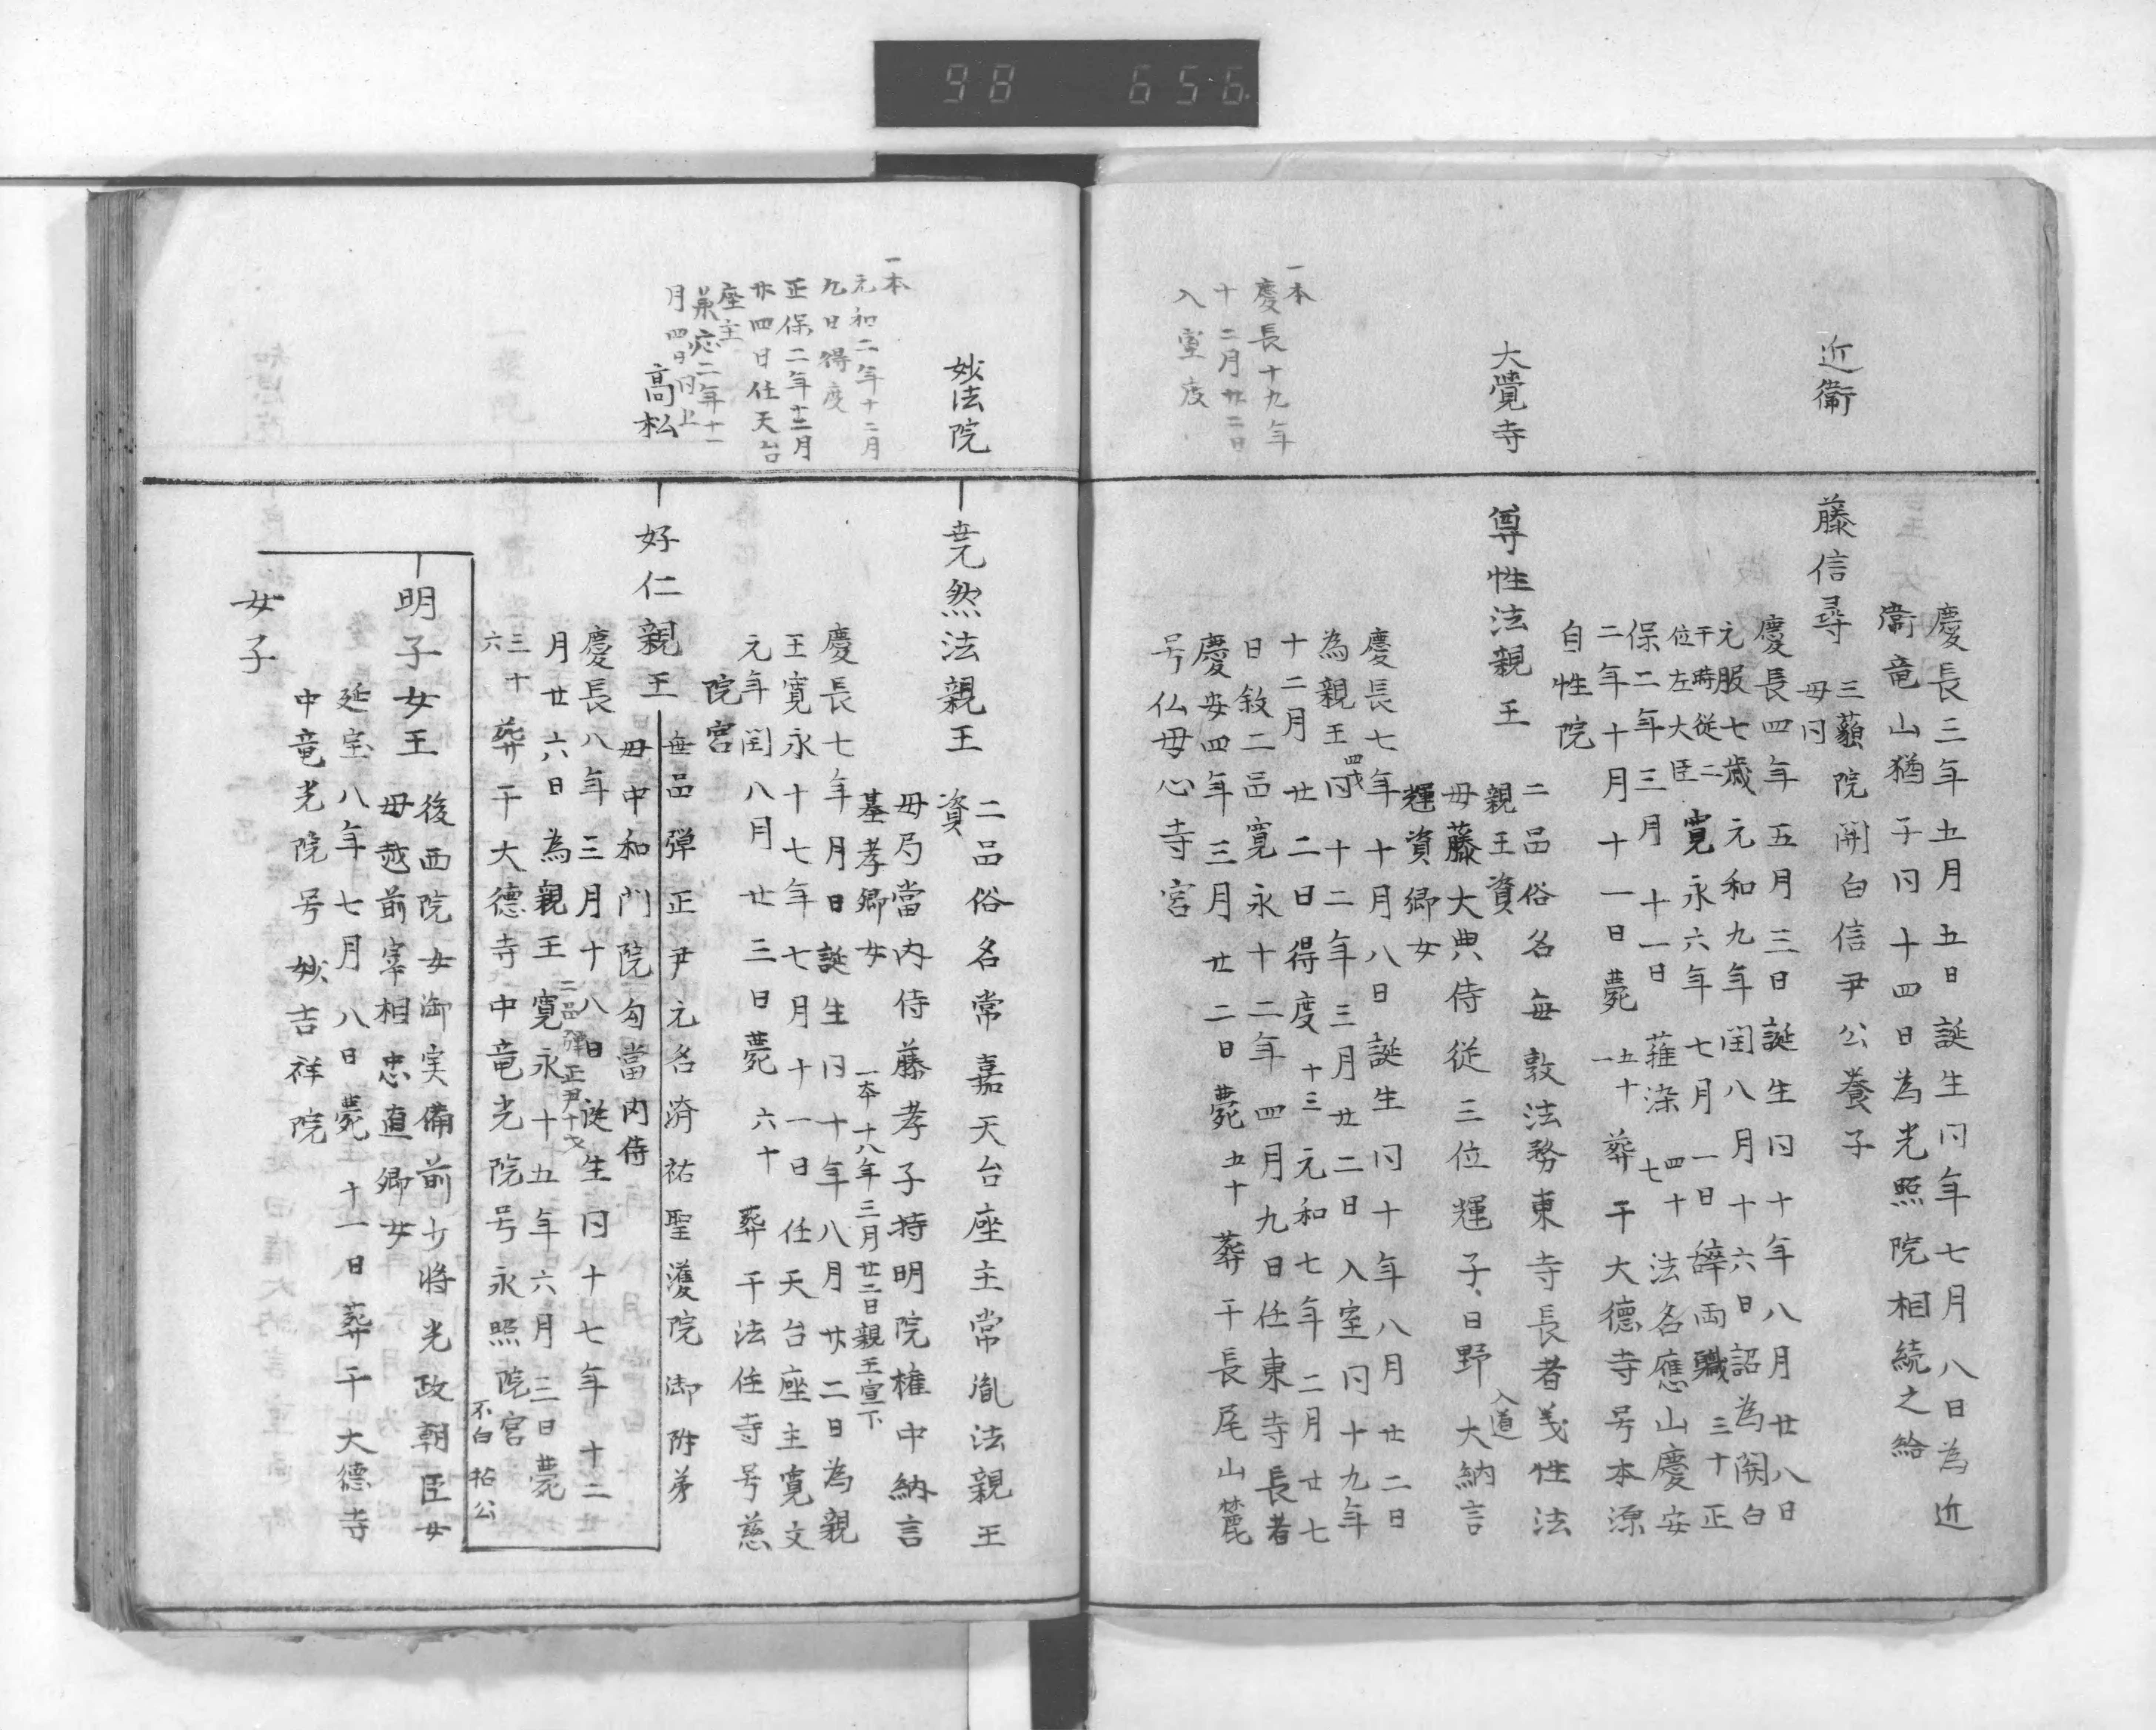 98 656
近衛
慶長三年五月五日誕生同年七月八日為近
衛竜山猶子同十四日為光照院相続之給
藤信尋
三藐院関白信尹公養子
母同
慶長四年五月三日誕生同十年八月廿八日
元服七歳元和九年閏八月十六日詔為関白
于時従二
位左大臣
寛永六年七月一日辞両職三十正
保二年三月十一日薙染四十七法名應山慶安
二年十月十一日薨五十一葬于大德寺号本源
自性院
大覺寺
尊性法親王
二品俗名毎敦法務東寺長者義性法
親王資
母藤大典侍従三位輝子日野大納言
入道
輝資卿女
慶長七年十月八日誕生同十年八月廿二日
為親王四才同十二年三月廿二日入室同十九年
十二月廿二日得度十三元和七年二月廿七
日敘二品寛永十二年四月九日任東寺長者
慶安四年三月廿二日薨五十葬于長尾山麓
号仏母心寺宮
一本
慶長十九年
十二月廿二日
入室度
妙法院
尭然法親王
二品俗名常嘉天台座主常胤法親王
資
母勾當内侍藤孝子持明院権中納言
基孝卿女
一本十八年三月廿二日親王宣下
慶長七年月日誕生同十年八月廿二日為親
王寛永十七年七月十一日任天台座主寛文
元年閏八月廿三日薨六十葬于法住寺号慈
院宮
一本
元和二年十二月
九日得度
正保二年十二月
廿四日任天台
座主
承応二年十一
月四日同上
高松
好仁親王
無品弾正尹元名済祐聖護院御附弟
母中和門院勾當内侍
慶長八年三月十八日誕生同十七年十二
二品弾正尹十才
月廿六日為親王寛永十五年六月三日薨
三十
六
葬于大德寺中竜光院号永照院宮
不白祐公
明子女王
後西院女御実備前少将光政朝臣女
母越前宰相忠直卿女
延宝八年七月八日薨十一日葬于大德寺
中竜光院号妙吉祥院
女子